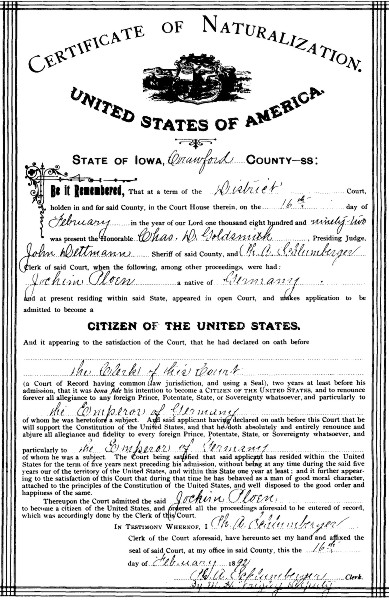 CERTIFICATE OF NATURALIZATION.
UNITED STATES OF AMERICA.
STATE OF IOWA, Crawford COUNTY—SS:
Be it Remembered, That at a term of the District Court,
holden in and for said County, in the Court House therein, on the 16th day of
February in the year of our Lord one thousand eight hundred and ninety-two
was present the Honorable Chas. D. Goldsmith, Presiding Judge,
John Dettmann Sheriff of said County, and Th. A. Schlumberger
Clerk of said Court, when the following, among other proceedings, were had:
Jochim Ploen a native of Germany
and at present residing within said State, appeared in open Court, and makes application to be
admitted to become a
CITIZEN OF THE UNITED STATES.
And it appearing to the satisfaction of the Court, that he had declared on oath before
the Clerk of this Court
(a Court of Record having common law jurisdiction, and using a Seal), two years at least before his
admission, that it was bona fide his intention to become a CITIZEN OF THE UNITED STATES, and to renounce
forever all allegiance to any foreign Prince, Potentate, State, or Sovereignty whatsoever, and particularly to
the Emperor of Germany
of whom he was heretofore a subject. And said applicant having declared on oath before this Court that he
will support the Constitution of the United States, and that he doth absolutely and entirely renounce and
abjure all allegiance and fidelity to every foreign Prince, Potentate, State, or Sovereignty whatsoever, and
particularly to the Emperor of Germany
of whom he was a subject. The Court being satisfied that said applicant has resided within the United
States for the term of five years next preceding his admission, without being at any time during the said five
years out of the territory of the United States, and within this State one year at least; and it further appear-
ing to the satisfaction of this Court that during that time he has behaved as a man of good moral character,
attached to the principles of the Constitution of the United States, and well disposed to the good order and
happiness of the same.
Thereupon the Court admitted the said Jochim Ploen,
to become a citizen of the United States, and ordered all the proceedings aforesaid to be entered of record,
which was accordingly done by the Clerk of this Court.
IN TESTIMONY WHEREOF, I Th. A. Schlumberger
Clerk of the Court aforesaid, have hereunto set my hand and affixed the
seal of said Court, at my office in said County, this the 16th
day of February 1892
Th. A. Schlumberger Clerk.
By Deputy